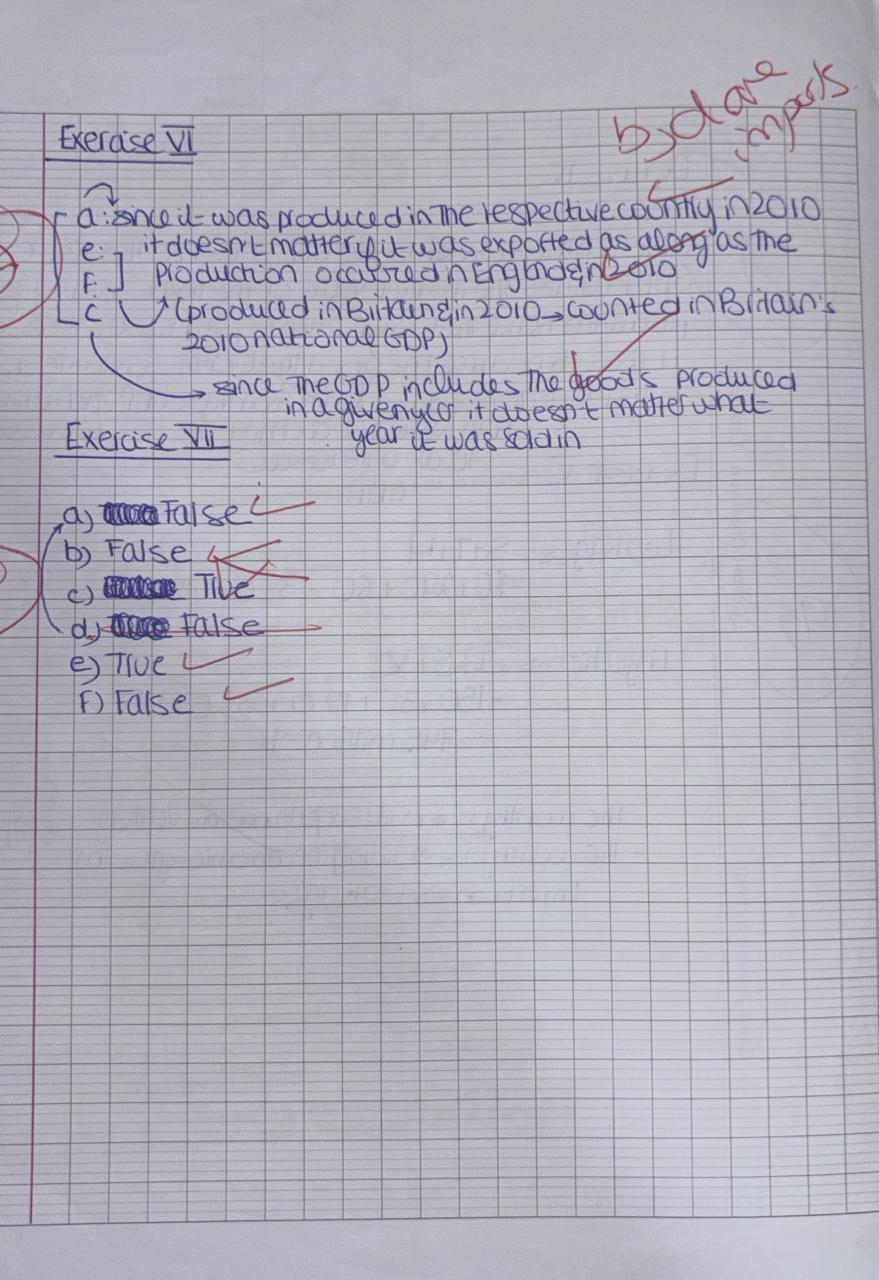 b, d are
imports.
Exercise VI
a: since it was produced in the respective country in 2010
e: it doesn't matter if it was exported as along as the
F. production occurred in England & in 2010
C (produced in Britain & in 2010 → counted in Britain's
2010 national GDP)
→ since the GDP includes the goods produced
in a given year it doesn't matter what
year it was sold in
Exercise VII
a) False
b) False
c) True
d) False
e) True
F) False